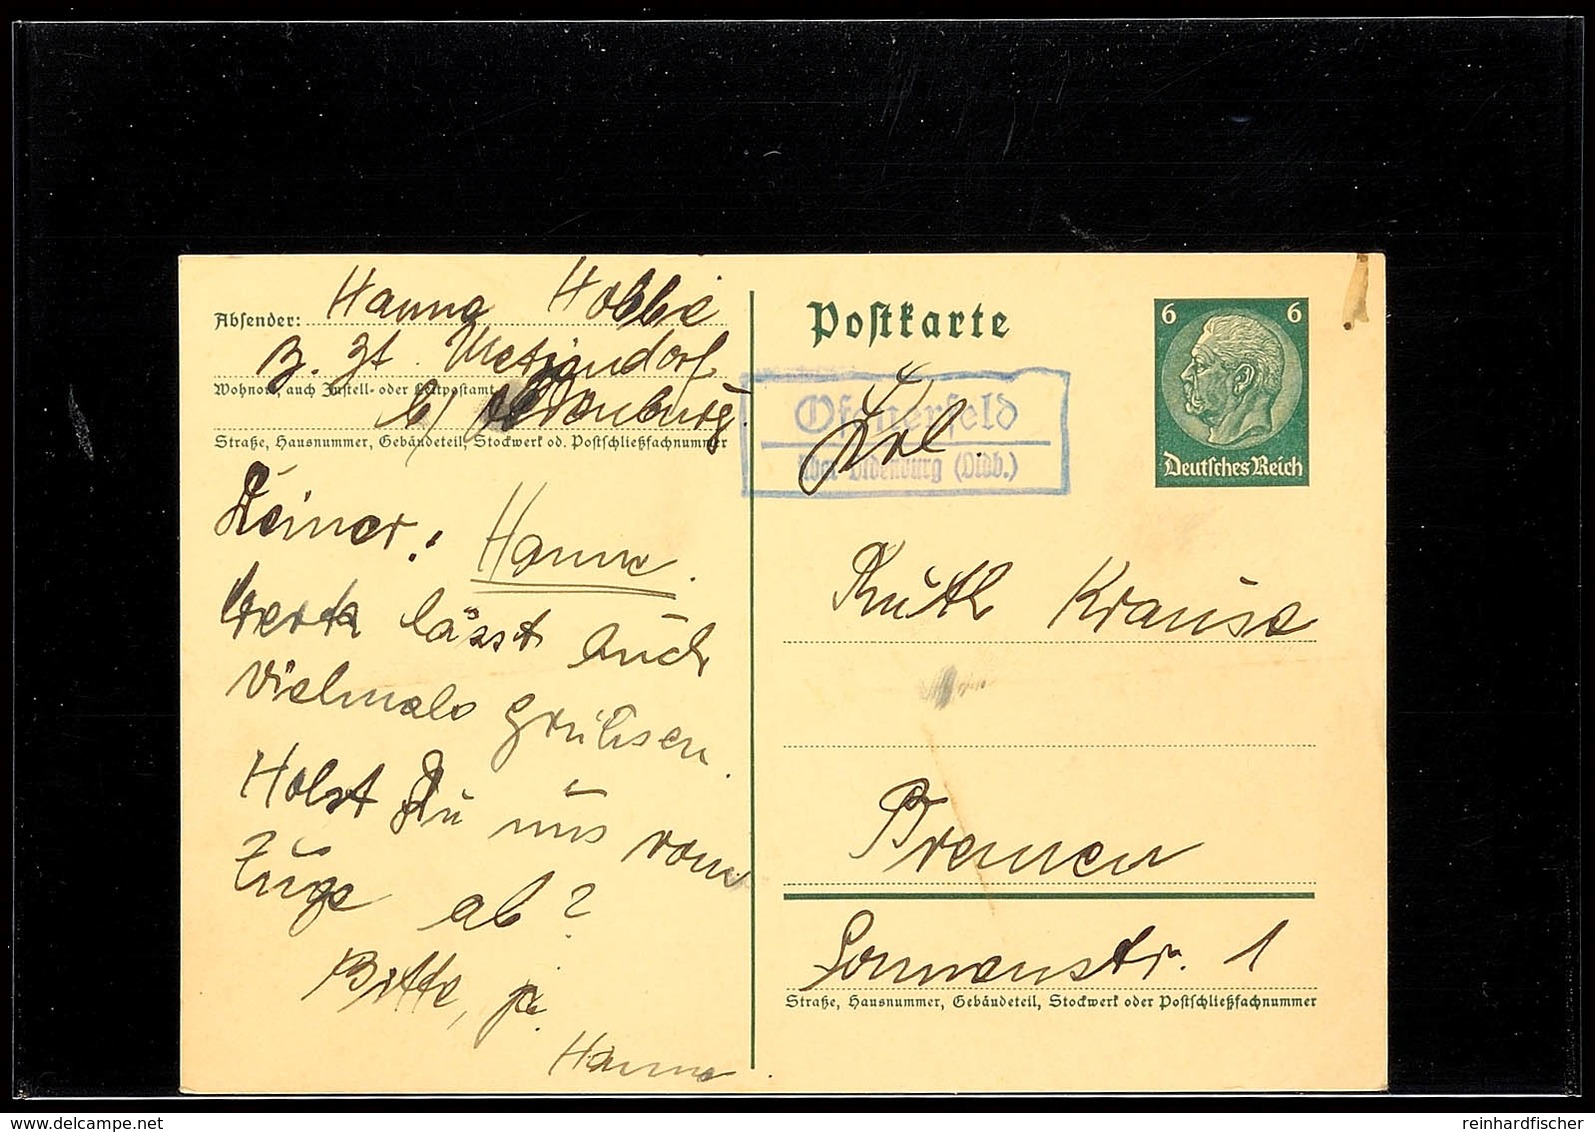 Absender: Hanna Hobbie
z. Zt. Metjendorf
Wohnort, auch Zustell- oder Leitpostamt
b/ Oldenburg.
Straße, Hausnummer, Gebäudeteil, Stockwerk od. Postschließfachnummer
Deiner
Hanne.
lässt auch
vielmals grühsen.
Holst Du uns vom
Zuge ab?
Bitte, ja.
Hanne.
Postkarte
6 6
Deutsches Reich
Ofenerfeld
über Oldenburg (Oldb.)
Frl.
Ruth Krause
Bremen
Sonnenstr. 1
Straße, Hausnummer, Gebäudeteil, Stockwerk oder Postschließfachnummer
reinhardfischer